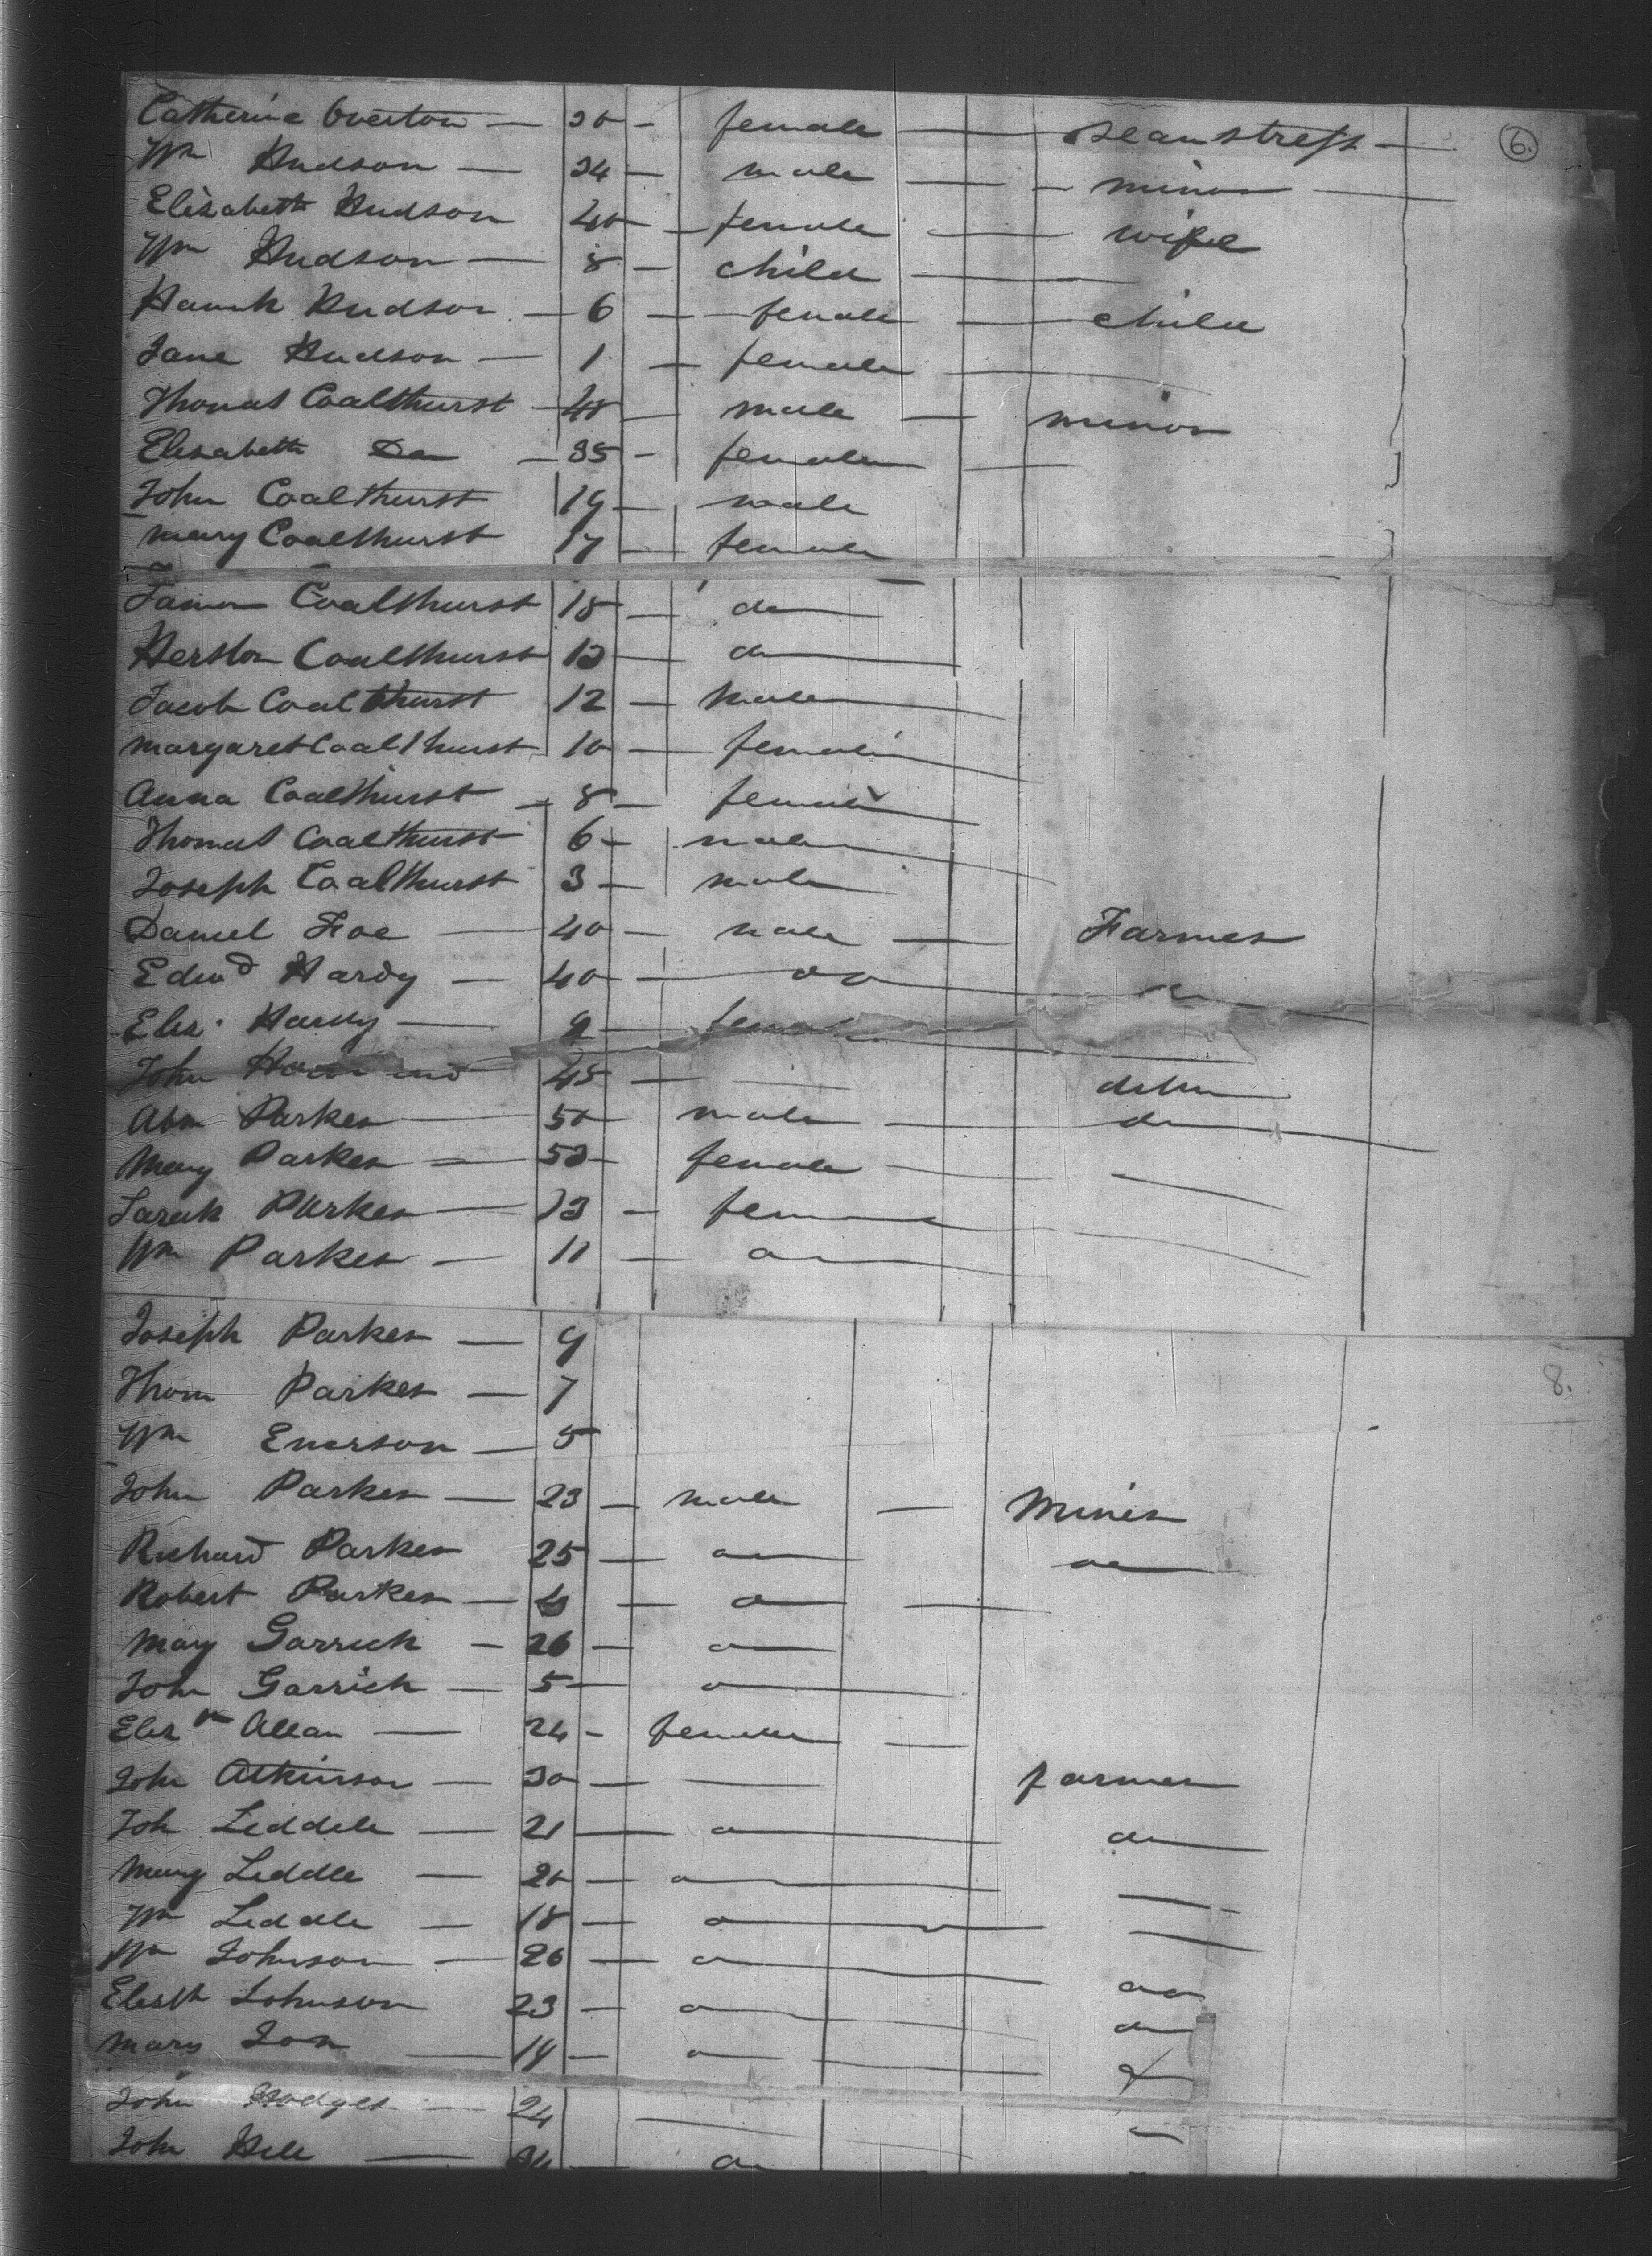 6.
Catherine Overton — 20 — female — seamstress —
Wm Hudson — 34 — male — minor
Elisabeth Hudson 40 — female — wife
Wm Hudson — 8 — child —
Hanh Hudson — 6 — female — child
Jane Hudson — 1 — female —
Thomas Coalthurst — 48 — male — minor
Elisabeth Do — 35 — female —
John Coalthurst 19 — male
Mary Coalthurst 17 — female
Coalthurst 18 — do
Coalthurst 13 — do
Jacob Coalthurst 12 — male
Margaret Coalthurst 10 — female
Anna Coalthurst — 8 — female
Thomas Coalthurst 6 — male
Joseph Coalthurst 3 — male
Daniel Foe — 40 — male — Farmer
Edwd Hardy — 40 — do — do
Elis. Hardy — 9 — female
John 45 — ditto
Abm Parker — 50 — male — do
Mary Parker — 53 — female —
Sarah Parker — 13 — female
Wm Parker — 11 — do
8.
Joseph Parker — 9
Thom Parker — 7
Wm Emerson — 5
John Parker — 23 — male — Miner
Richard Parker 25 — do — do
Robert Parker — 4 — do —
Mary Garrick — 26 — do
John Garrick — 5 — do
Elizth Allan — 24 — female —
John Atkinson — 30 — farmer
Joh Leddele — 21 — do — do
Mary Leddle — 20 — do —
Wm Leddle — 18 — do —
Wm Johnson — 26 — do — do
Elizth Johnson 23 — do — do
Mary Jon — 14 — do —
John Hodges — 24 —
John Hele — 34 — do —